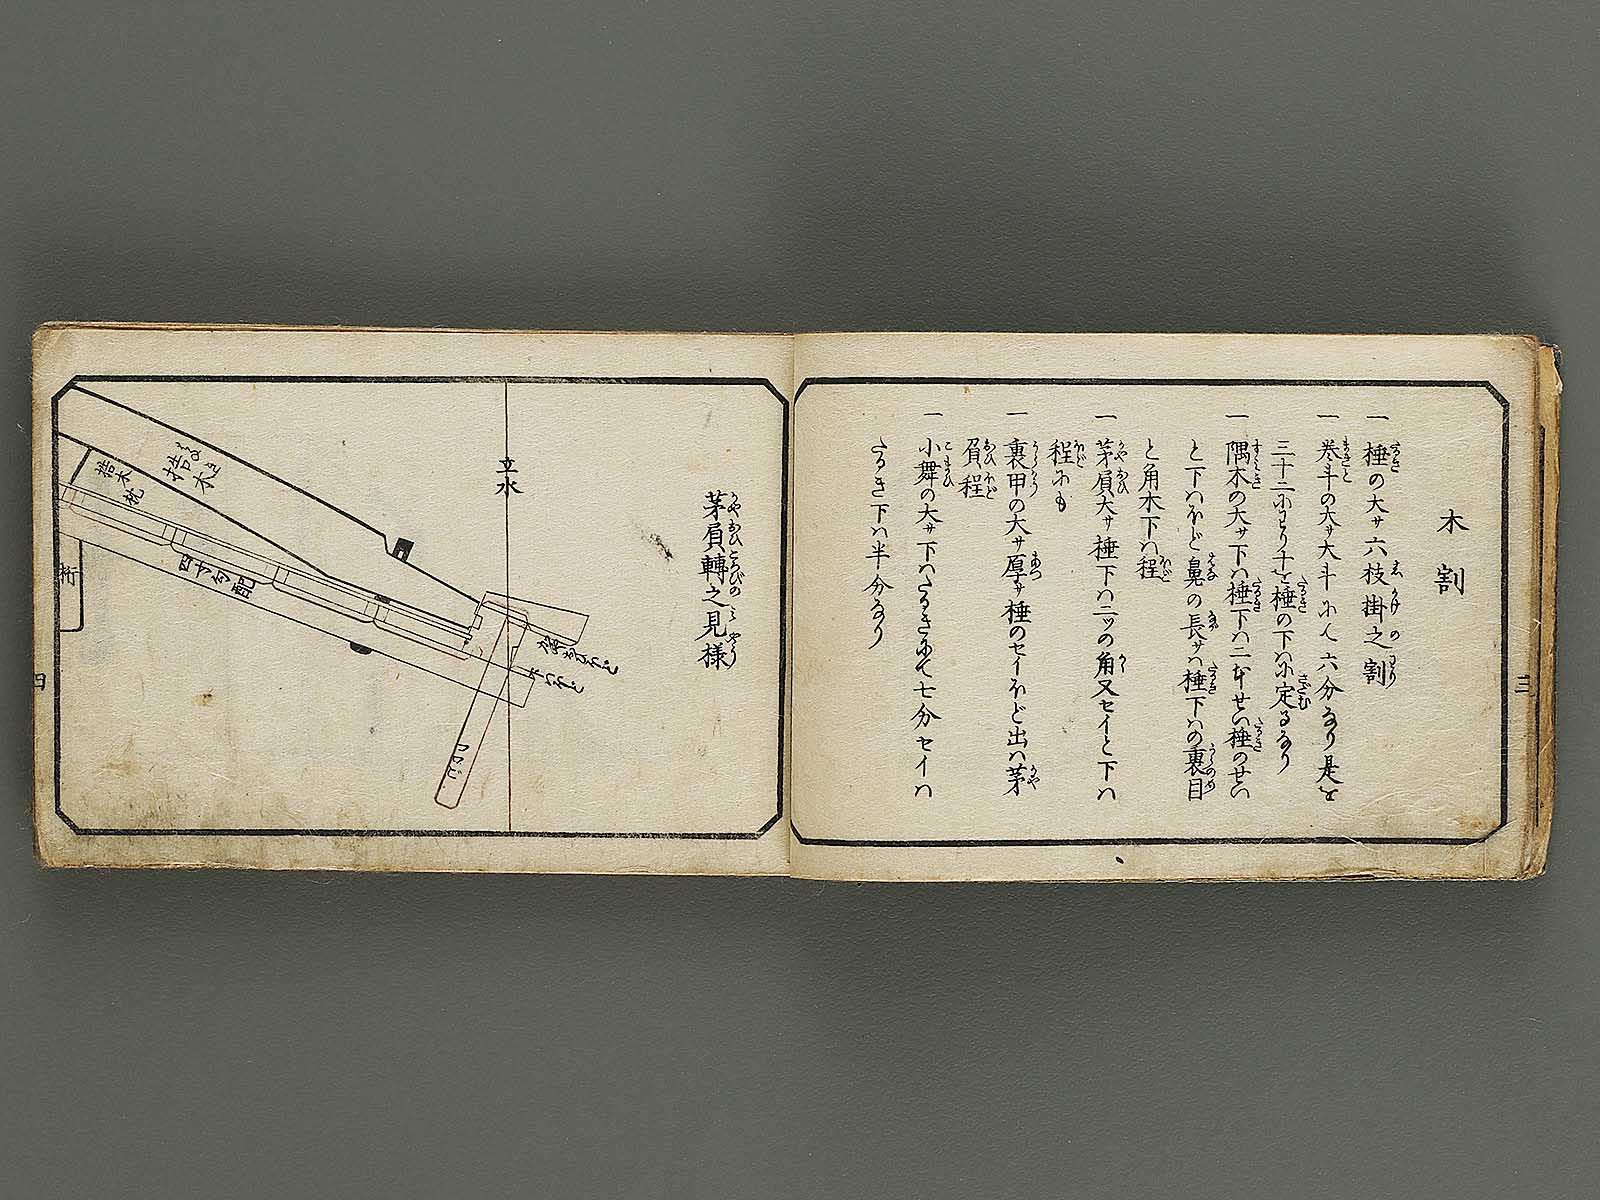 木割
一 棰の大サ六枝掛之割
一 巻斗の大サ大斗にて六分なり是を
三十二にわり十を棰の下ハに定るなり
一 隅木の大サ下ハ棰下ハ二本せい棰のせい
と下ハほど鼻の長サハ棰下ハの裏目
と角木下ハ程
一 茅負大サ棰下ハ二ッの角又セイと下ハ
程にも
一 裏甲の大サ厚サ棰のセイほど出ハ茅
負程
一 小舞の大サ下ハたるきにて七分セイハ
たるき下ハ半分なり
三
茅負轉之見様
かやおひころびのミやう
立水
はね木
桔木
桔木枕
四寸勾配
桁
四